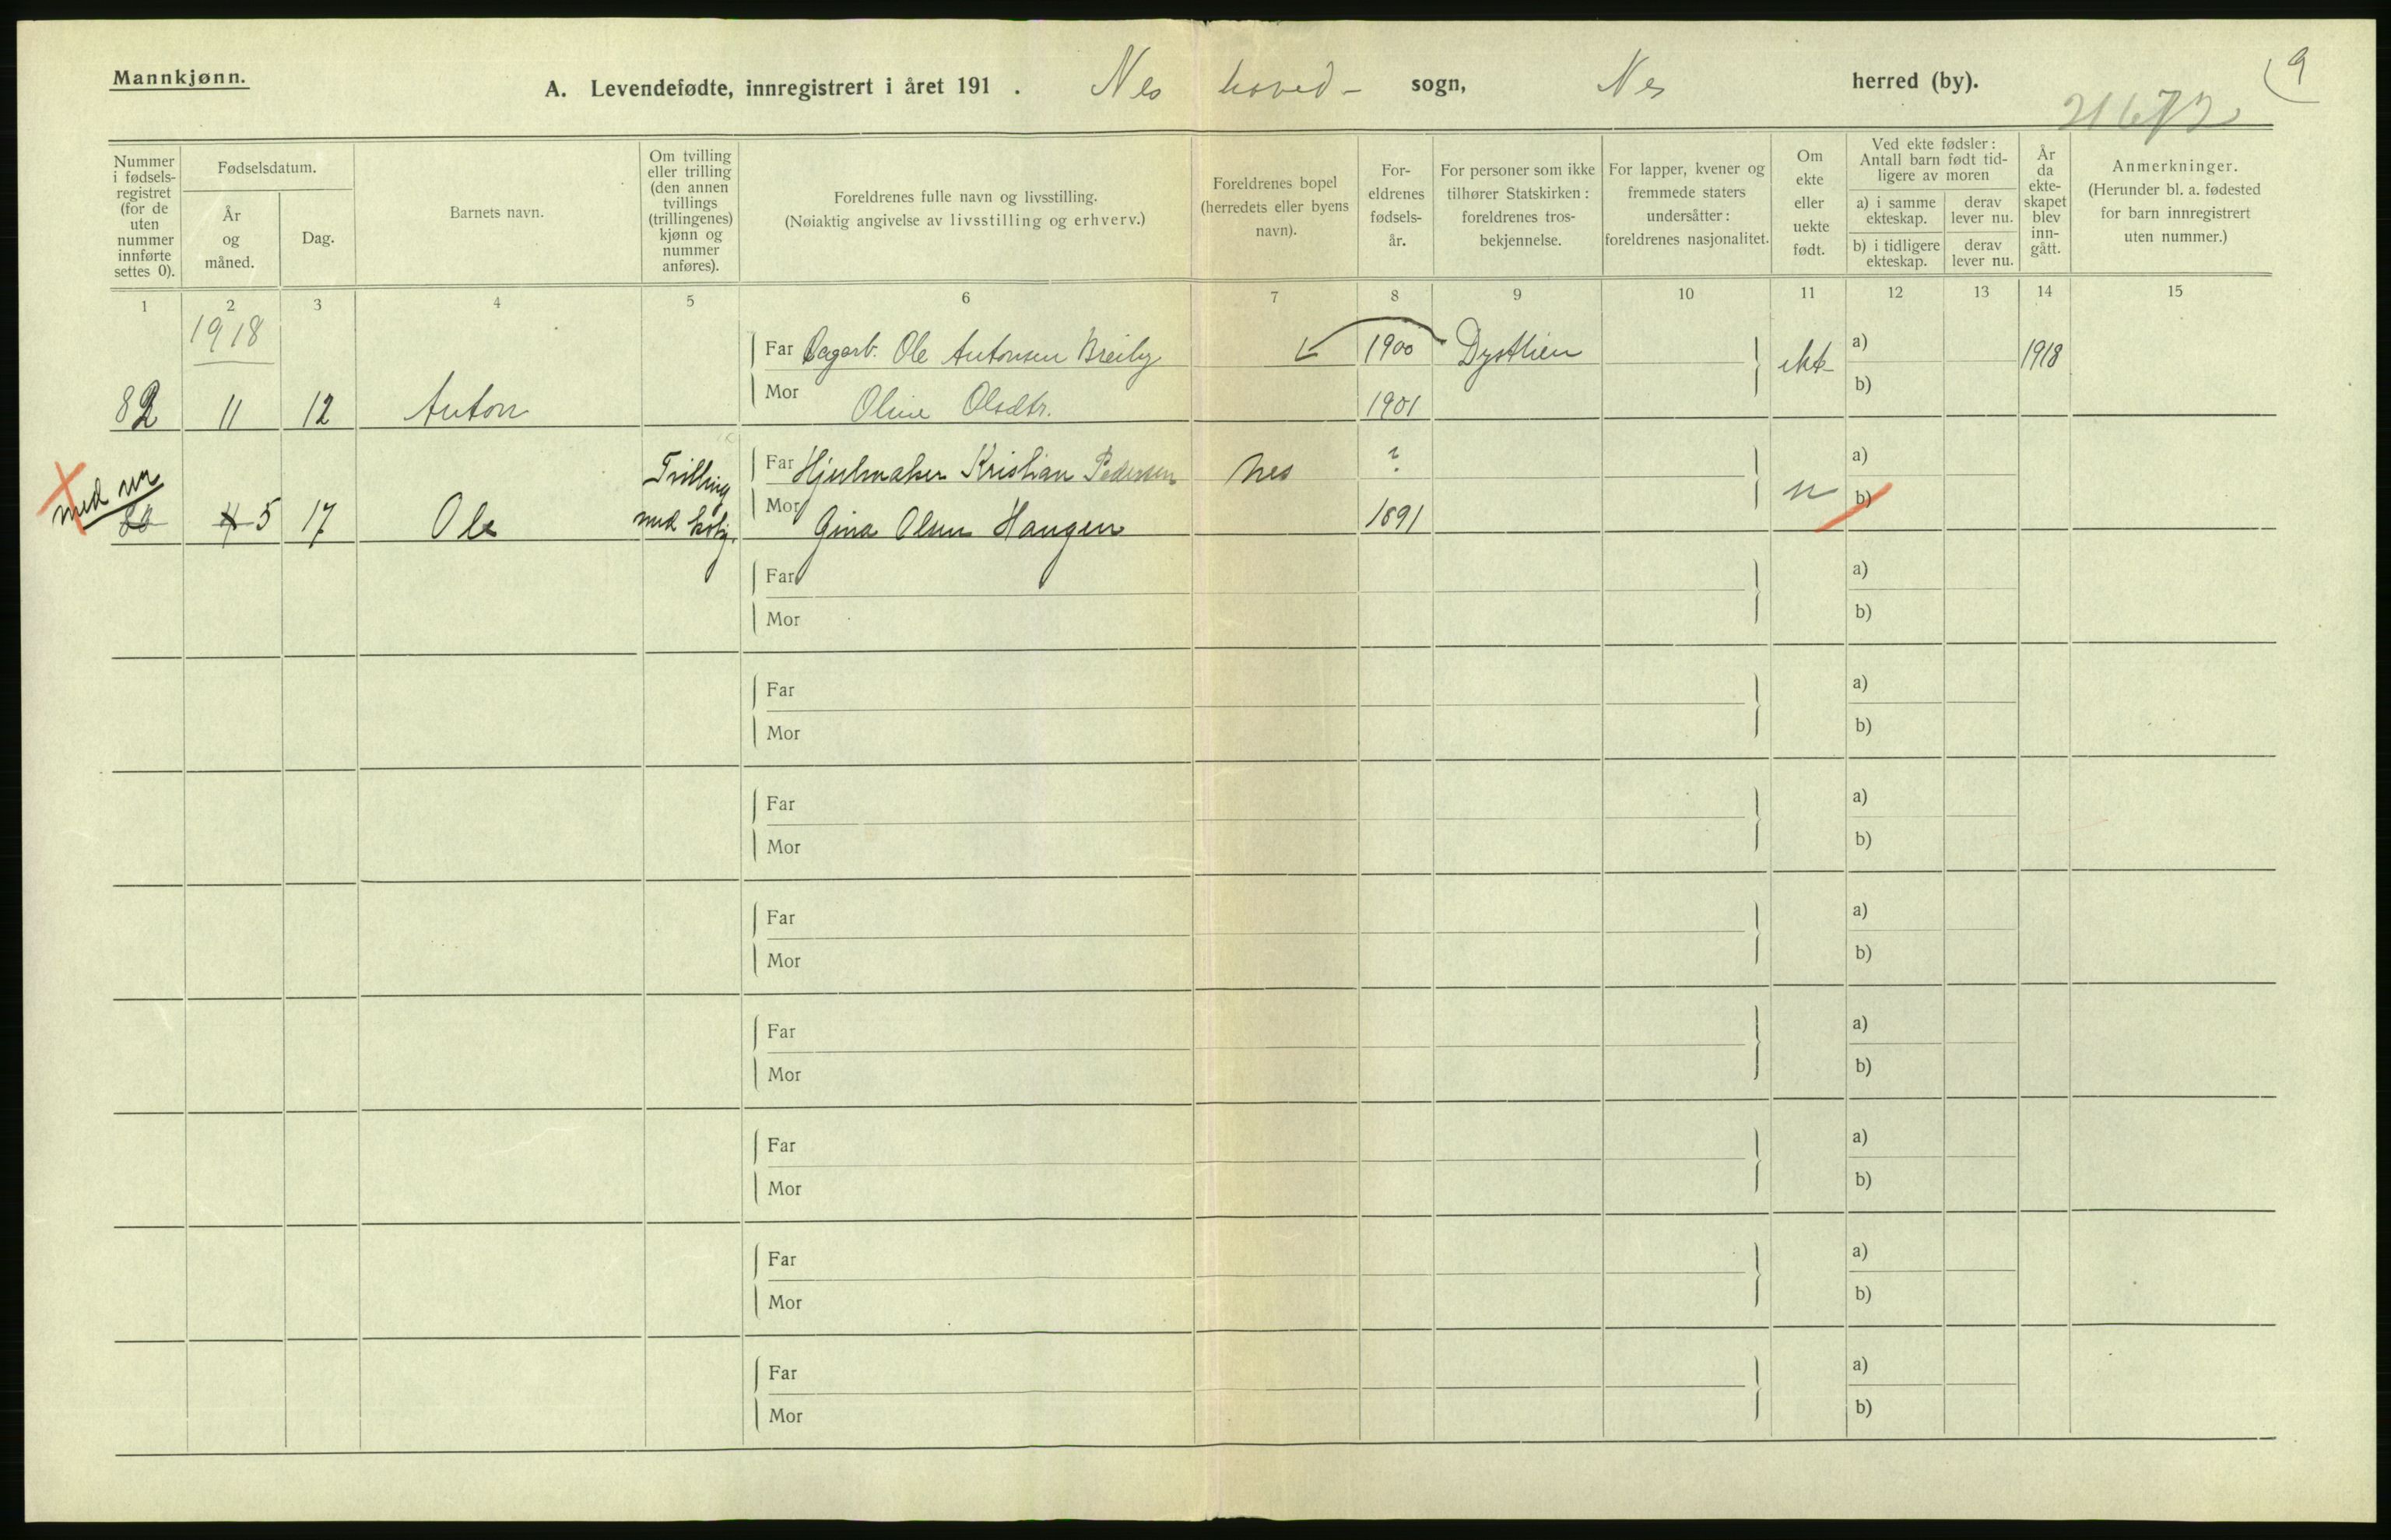 Mannkjønn.
A. Levendefødte, innregistrert i året 191 . Nes hoved- sogn, Nes herred (by).
9
21672
Nummer i fødsels-registret (for de uten nummer innførte settes 0).
Fødselsdatum.
År og måned.
Dag.
Barnets navn.
Om tvilling eller trilling (den annen tvillings (trillingenes) kjønn og nummer anføres).
Foreldrenes fulle navn og livsstilling.
(Nøiaktig angivelse av livsstilling og erhverv.)
Foreldrenes bopel (herredets eller byens navn).
For-eldrenes fødsels-år.
For personer som ikke tilhører Statskirken: foreldrenes tros-bekjennelse.
For lapper, kvener og fremmede staters undersåtter: foreldrenes nasjonalitet.
Om ekte eller uekte født.
Ved ekte fødsler: Antall barn født tid-ligere av moren
a) i samme ekteskap.
derav lever nu.
b) i tidligere ekteskap.
derav lever nu.
År da ekte-skapet blev inn-gått.
Anmerkninger.
(Herunder bl. a. fødested for barn innregistrert uten nummer.)
1 2 3 4 5 6 7 8 9 10 11 12 13 14 15
1918
Far Dagarb. Ole Antonsen Breiby 1900 Dysthien ekte a) 1918
82 11 12 Anton Mor Oline Olsdtr. 1901 b)
Trilling Far Hjulmaker Kristian Pedersen Nes ? a)
med nr
5 17 Ole med Mor Gina Olsen Haugen 1891 u b)
Far a)
Mor b)
Far a)
Mor b)
Far a)
Mor b)
Far a)
Mor b)
Far a)
Mor b)
Far a)
Mor b)
Far a)
Mor b)
Far a)
Mor b)